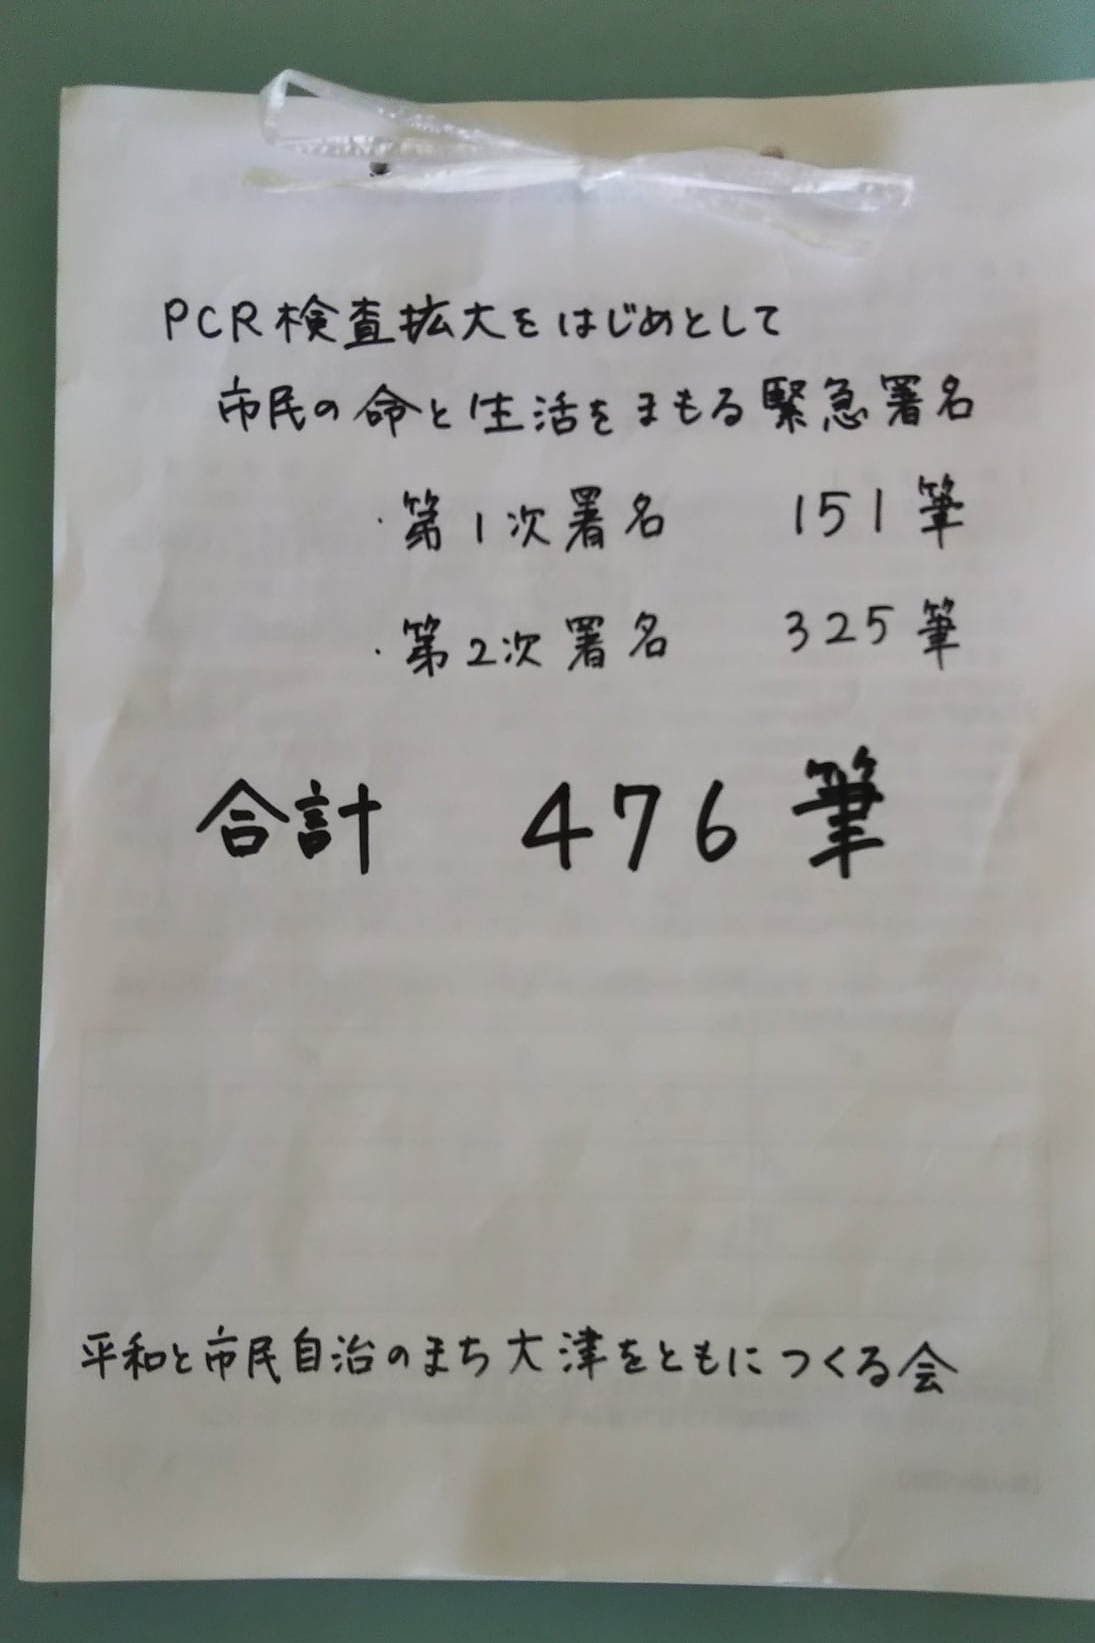 PCR検査拡大をはじめとして
市民の命と生活をまもる緊急署名
・第1次署名 151筆
・第2次署名 325筆
合計 476筆
平和と市民自治のまち大津をともにつくる会